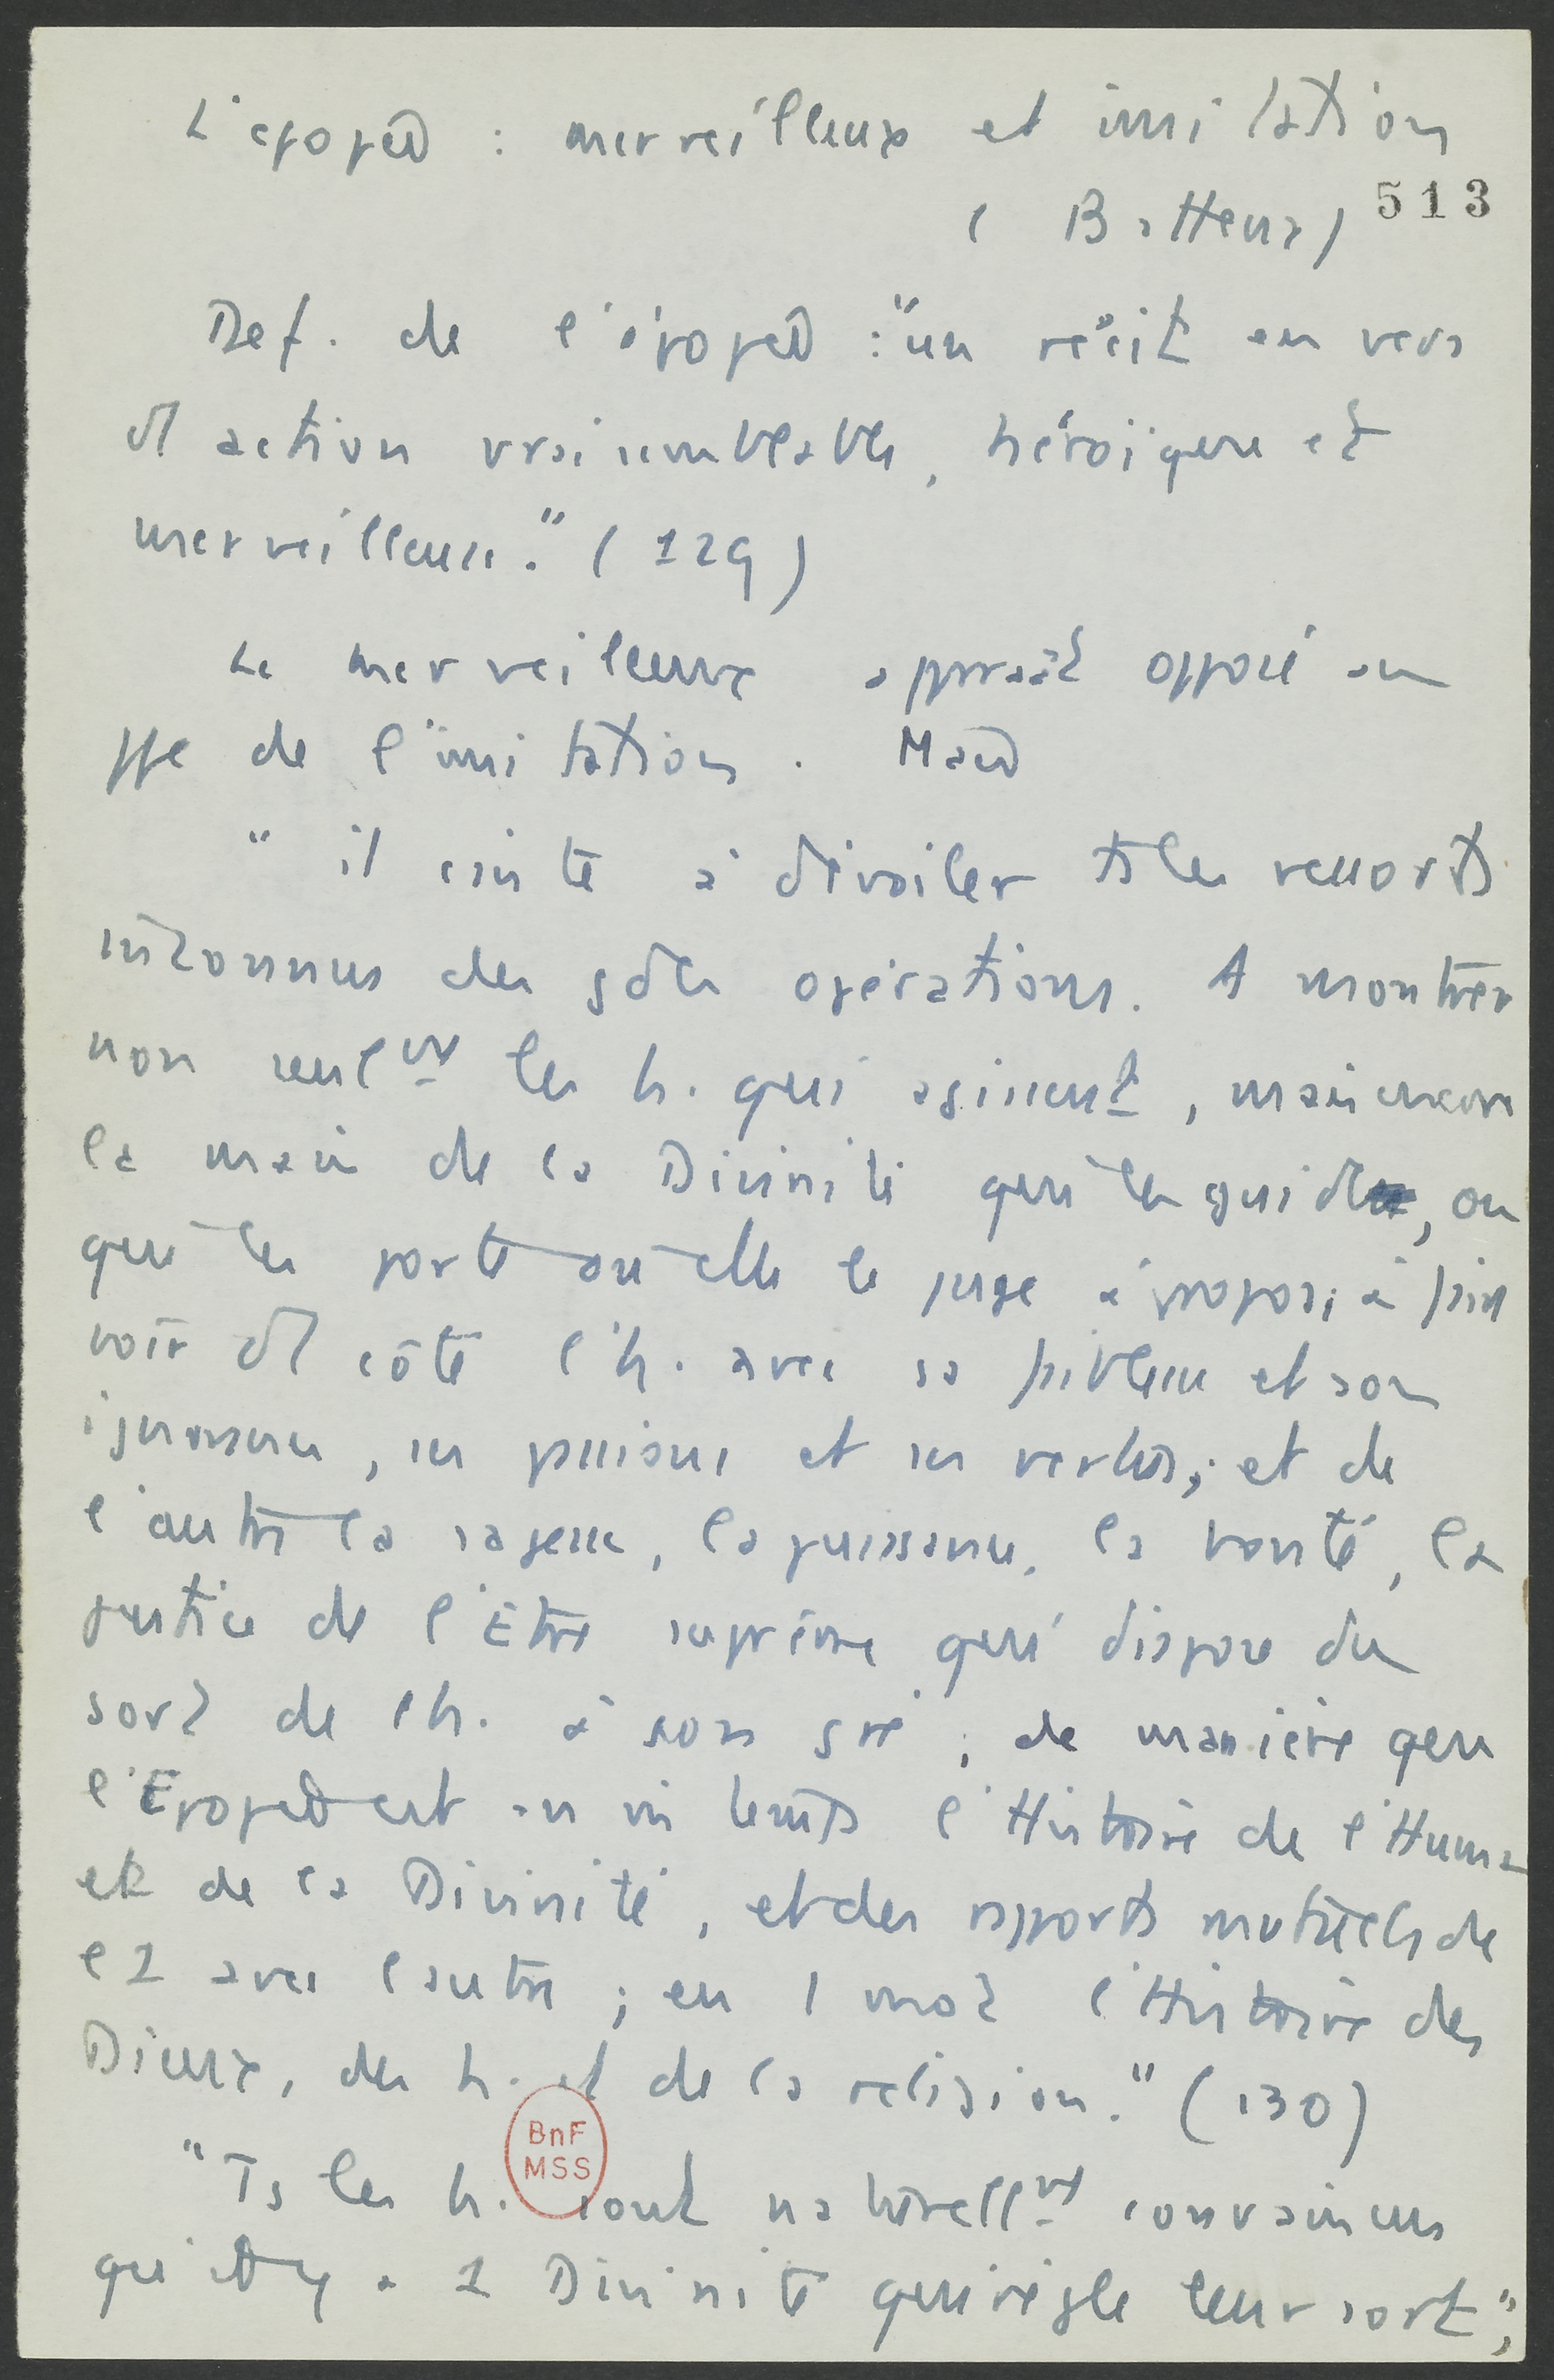 L'épopée : merveilleux et imitation
( Batteux) 513
Def. de l'épopée : "un récit en vers
d'1 action vraisemblable, héroïque et
merveilleuse." (129)
Le merveilleux apparaît opposé au
ppe de l'imitation. Mais
" il consiste à dévoiler ts les ressorts
inconnus des gdes opérations. A montrer
non seulmt les h. qui agissent, mais encore
la main de la Divinité qui les guide, ou
qui les porte où elle le juge à propos; à faire
voir d'1 côté l'h. avec sa faiblesse et son
ignorance, ses passions et ses vertus; et de
l'autre la sagesse, la puissance, la bonté, la
justice de l'Être suprême qui dispose du
sort de l'h. à son gré; de manière que
l'Epopée est en m temps l'Histoire de l'Huma
et de la Divinité, et des rapports mutuels de
l'1 avec l'autre ; en 1 mot l'Histoire des
Dieux, des h. et de la religion." (130)
BnF
MSS
"Ts les h. sont naturellmt convaincus
qu'il y a 1 Divinité qui règle leur sort";